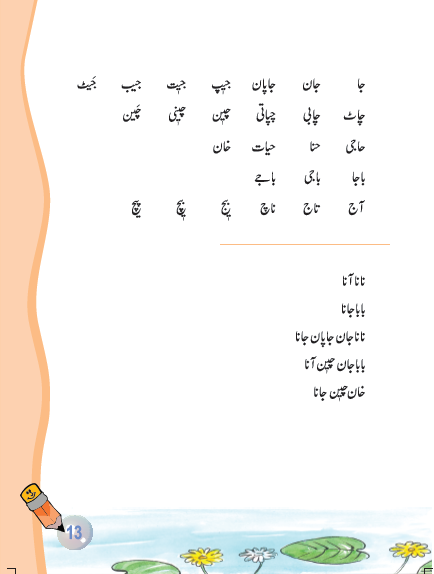 جا جان جاپان جیپ جیت جیب جَیٹ
چاٹ چابی چپاتی چین چینی چَین
حاجی حنا حیات خان
باجا باجی باجے
آج تاج ناچ بیج بیچ پیچ
نانا آنا
بابا جانا
نانا جان جاپان جانا
بابا جان چین آنا
خان چین جانا
13